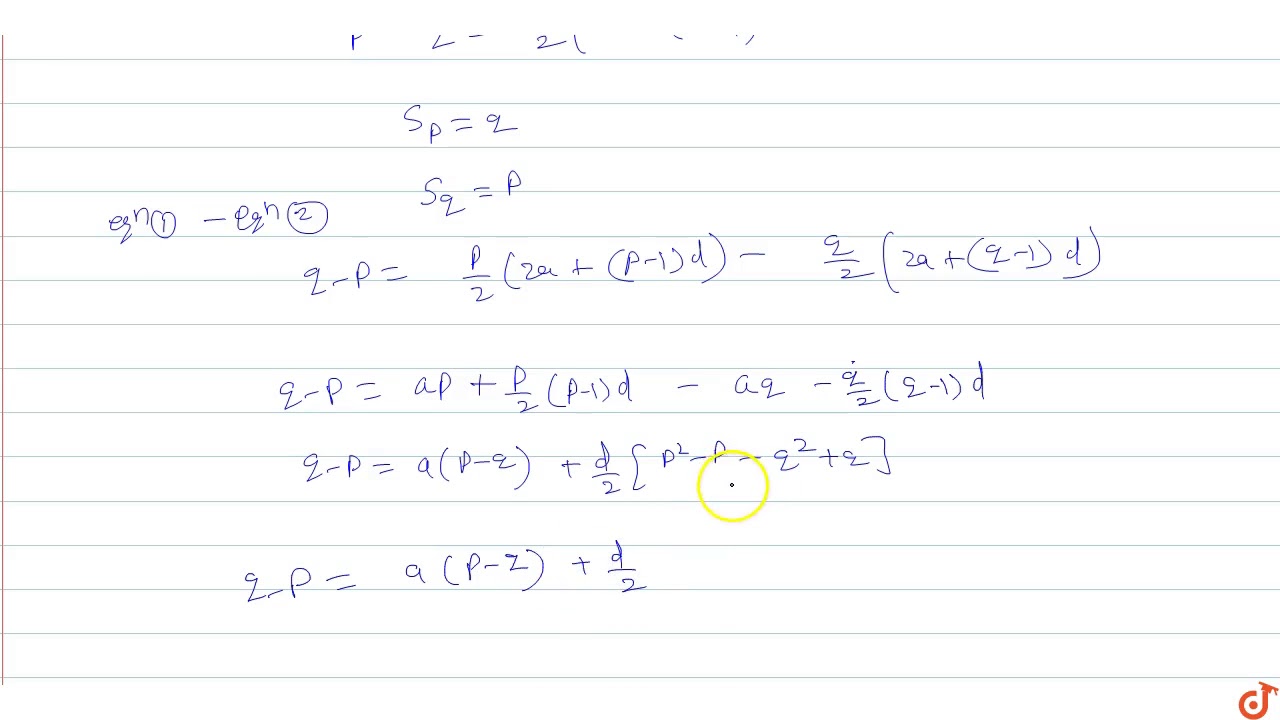 S_p = q
S_q = p
eqⁿ① − eqⁿ②
q−p = p/2 (2a + (p−1)d) − q/2 (2a + (q−1)d)
q−p = ap + p/2 (p−1)d − aq − q/2 (q−1)d
q−p = a(p−q) + d/2 [p² − p − q² + q]
q−p = a(p−q) + d/2